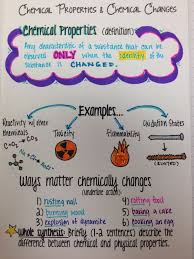 CHEMICAL PROPERTIES & CHEMICAL CHANGES
Chemical Properties (definition):
Any characteristic of a substance that can be
observed ONLY when the identity of the
substance is CHANGED.
Examples...
Reactivity w/ other
chemicals
Toxicity
Flammability
Oxidation States
(RUSTED)
Ways matter chemically changes
(underline action)
1) rusting nail
2) burning wood
3) explosion of dynamite
4) rotting food
5) baking a cake
6) cooking an egg
Whole synthesis: Briefly (1-2 sentences) describe the
difference between chemical and physical properties.